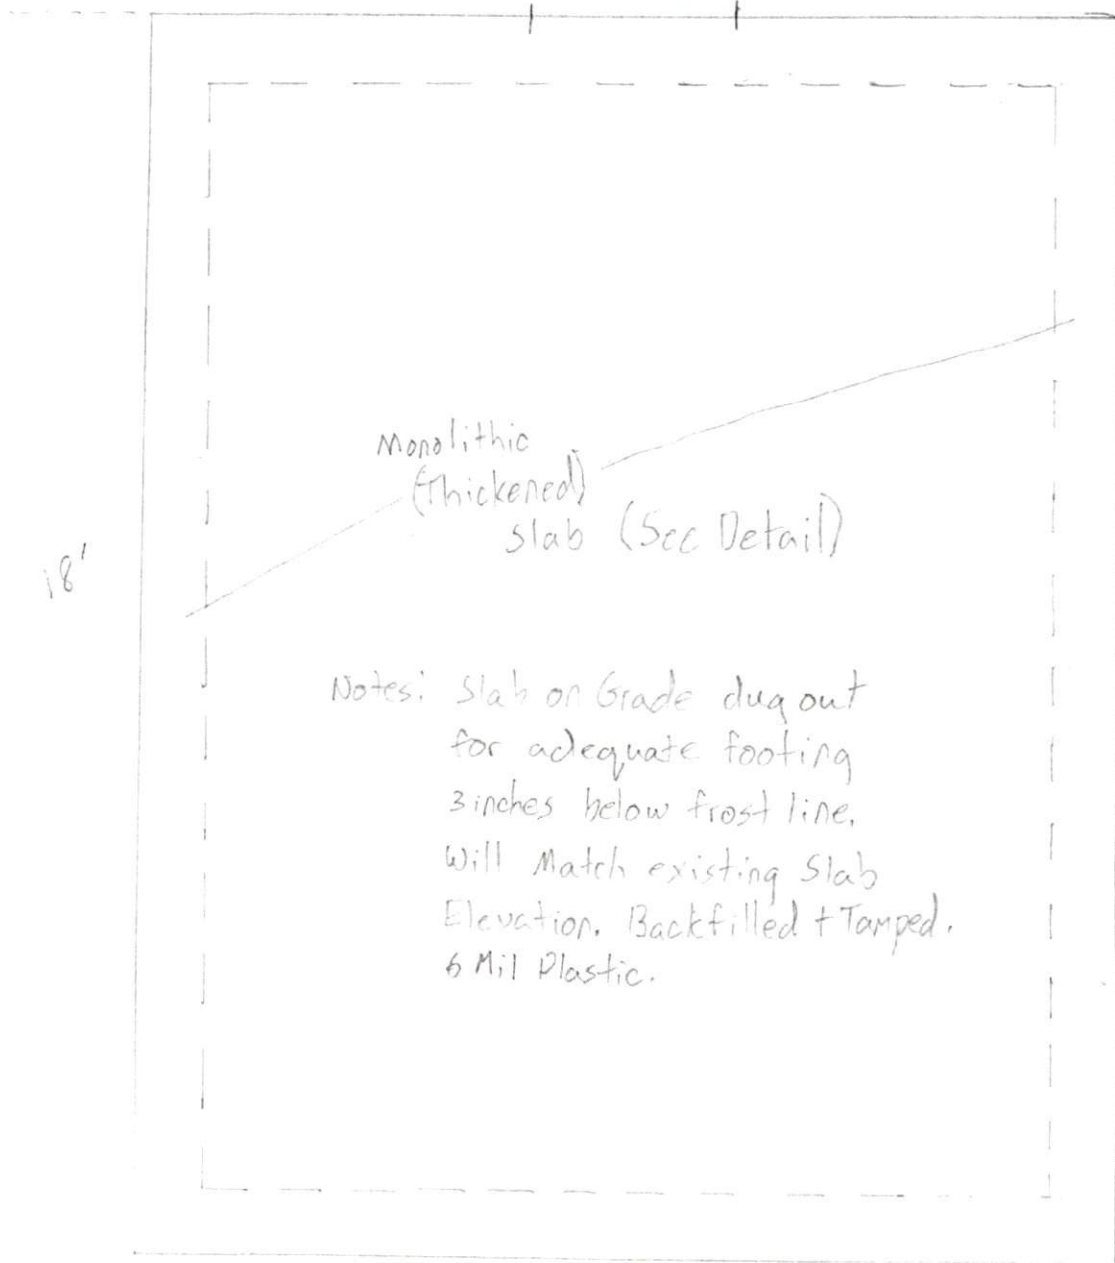 Monolithic
(Thickened)
Slab (See Detail)
18'
Notes: Slab on Grade dug out
for adequate footing
3 inches below frost line.
Will Match existing Slab
Elevation. Backfilled + Tamped.
6 Mil Plastic.